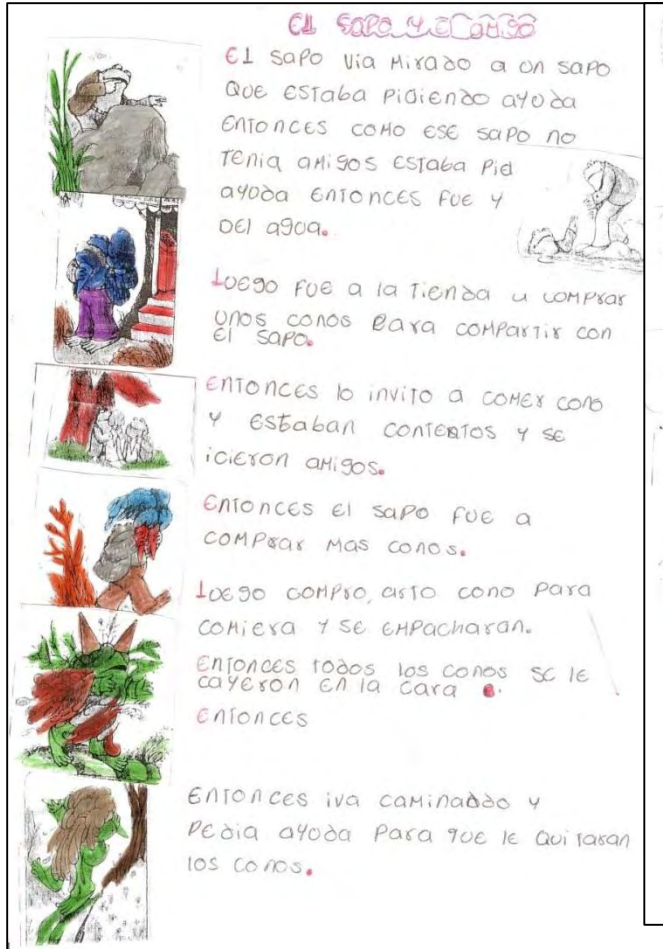 El SAPO Y El AMIGO
El SAPO VIA MIRADO A UN SAPO
QUE ESTABA PIDIENDO AYUDA
ENTONCES COMO ESE SAPO NO
TENIA AMIGOS ESTABA PID
AYUDA ENTONCES FUE Y
DEl AGUA.
LUEGO FUE A lA TIENDA a COMPRAR
UNOS CONOS PARA COMPARTIR CON
El SAPO.
ENTONCES lO INVITO A COMER CONO
Y ESTABAN CONTENTOS Y SE
ICIERON AMIGOS.
ENTONCES El SAPO FUE A
COMPRAR MAS CONOS.
LUEGO COMPRO, ARTO CONO PARA
COMIERA Y SE EMPACHARAN.
ENTONCES TODOS lOS CONOS SE lE
CAYERON EN lA CARA.
ENTONCES
ENTONCES IVA CAMINADDO Y
PEDIA AYUDA PARA QUE lE QUITARAN
lOS CONOS.